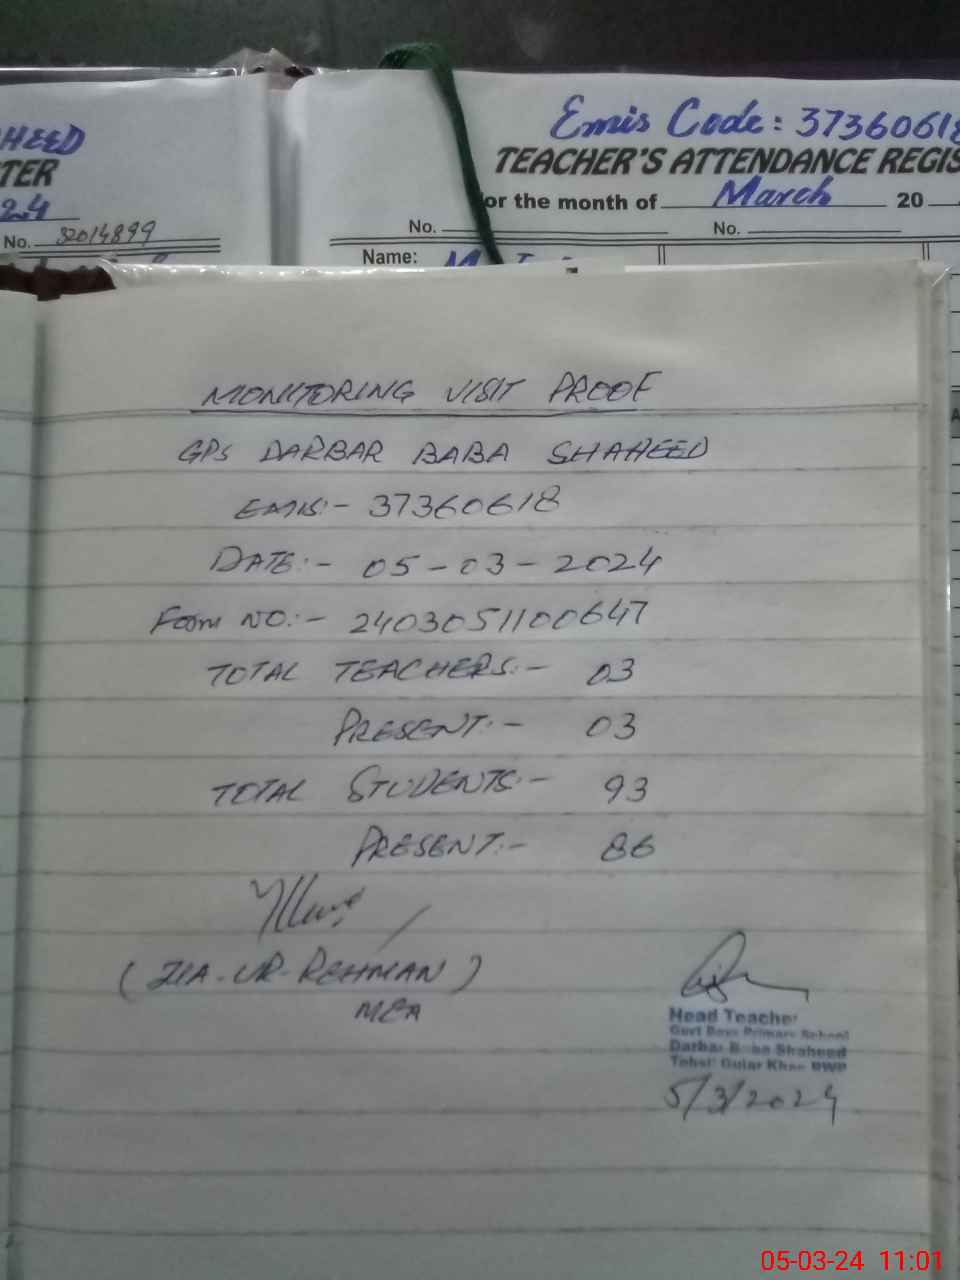 HEED
TER
24
No. 32014899
Emis Code: 37360618
TEACHER'S ATTENDANCE REGIS
or the month of March 20
No. No.
Name:
MONITORING VISIT PROOF
GPS DARBAR BABA SHAHEED
EMIS:- 37360618
DATE:- 05-03-2024
Form NO.:- 2403051100647
TOTAL TEACHERS:- 03
PRESENT:- 03
TOTAL STUDENTS:- 93
PRESENT:- 86
(ZIA-UR-REHMAN)
MEA
Head Teacher
Govt Boys Primary School
Darbar Baba Shaheed
Tehsil Gujar Khan RWP
5/3/2024
05-03-24 11:01